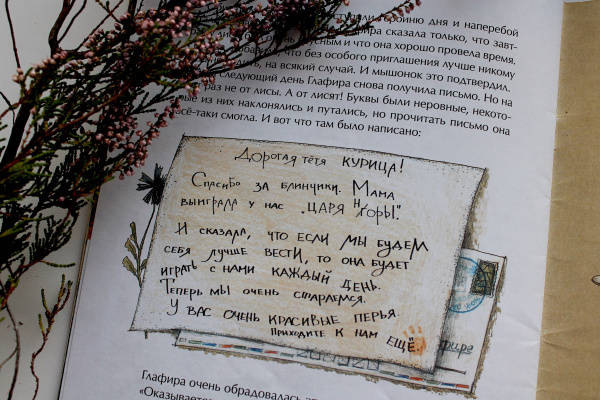 дня и наперебой
сказала только, что завт-
и что она хорошо провела время.
что без особого приглашения лучше никому
на всякий случай. И мышонок это подтвердил.
следующий день Глафира снова получила письмо. Но на
раз не от лисы. А от лисят! Буквы были неровные, некото-
из них наклонялись и путались, но прочитать письмо она
сё-таки смогла. И вот что там было написано:
Дорогая тётя КУРИЦА!
Спасибо за блинчики. Мама
выиграла у нас „ЦАРЯ ГОРЫ".
И сказала, что если мы будем
себя лучше вести, то она будет
играть с нами каждый день.
Теперь мы очень стараемся.
У вас очень красивые перья.
Приходите к нам ещё.
Глафира очень обрадовалась
«Оказывается